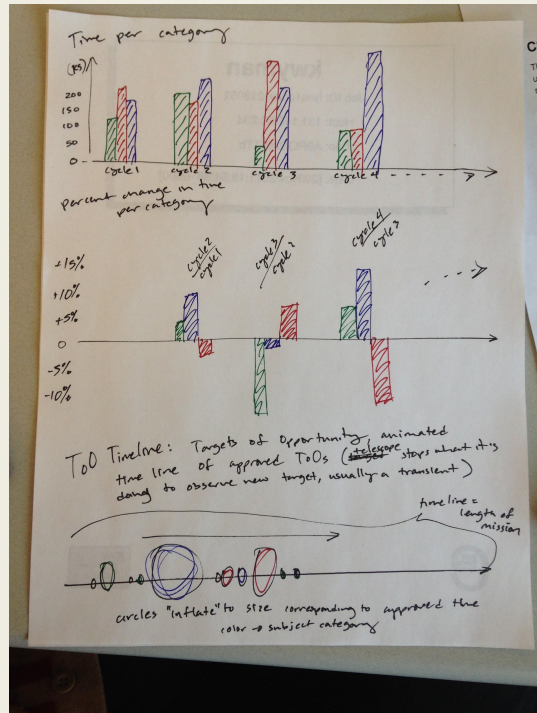 Time per category
(ks)
200
150
100
50
0
cycle 1 cycle 2 cycle 3 cycle 4
percent change in time
per category
cycle 2 / cycle 1
cycle 3 / cycle 2
cycle 4 / cycle 3
+15%
+10%
+5%
0
-5%
-10%
ToO Timeline: Targets of Opportunity, animated
time line of approved ToOs (telescope stops what it is
doing to observe new target, usually a transient)
timeline =
length of
mission
circles "inflate" to size corresponding to approved time
color → subject category
kwyman